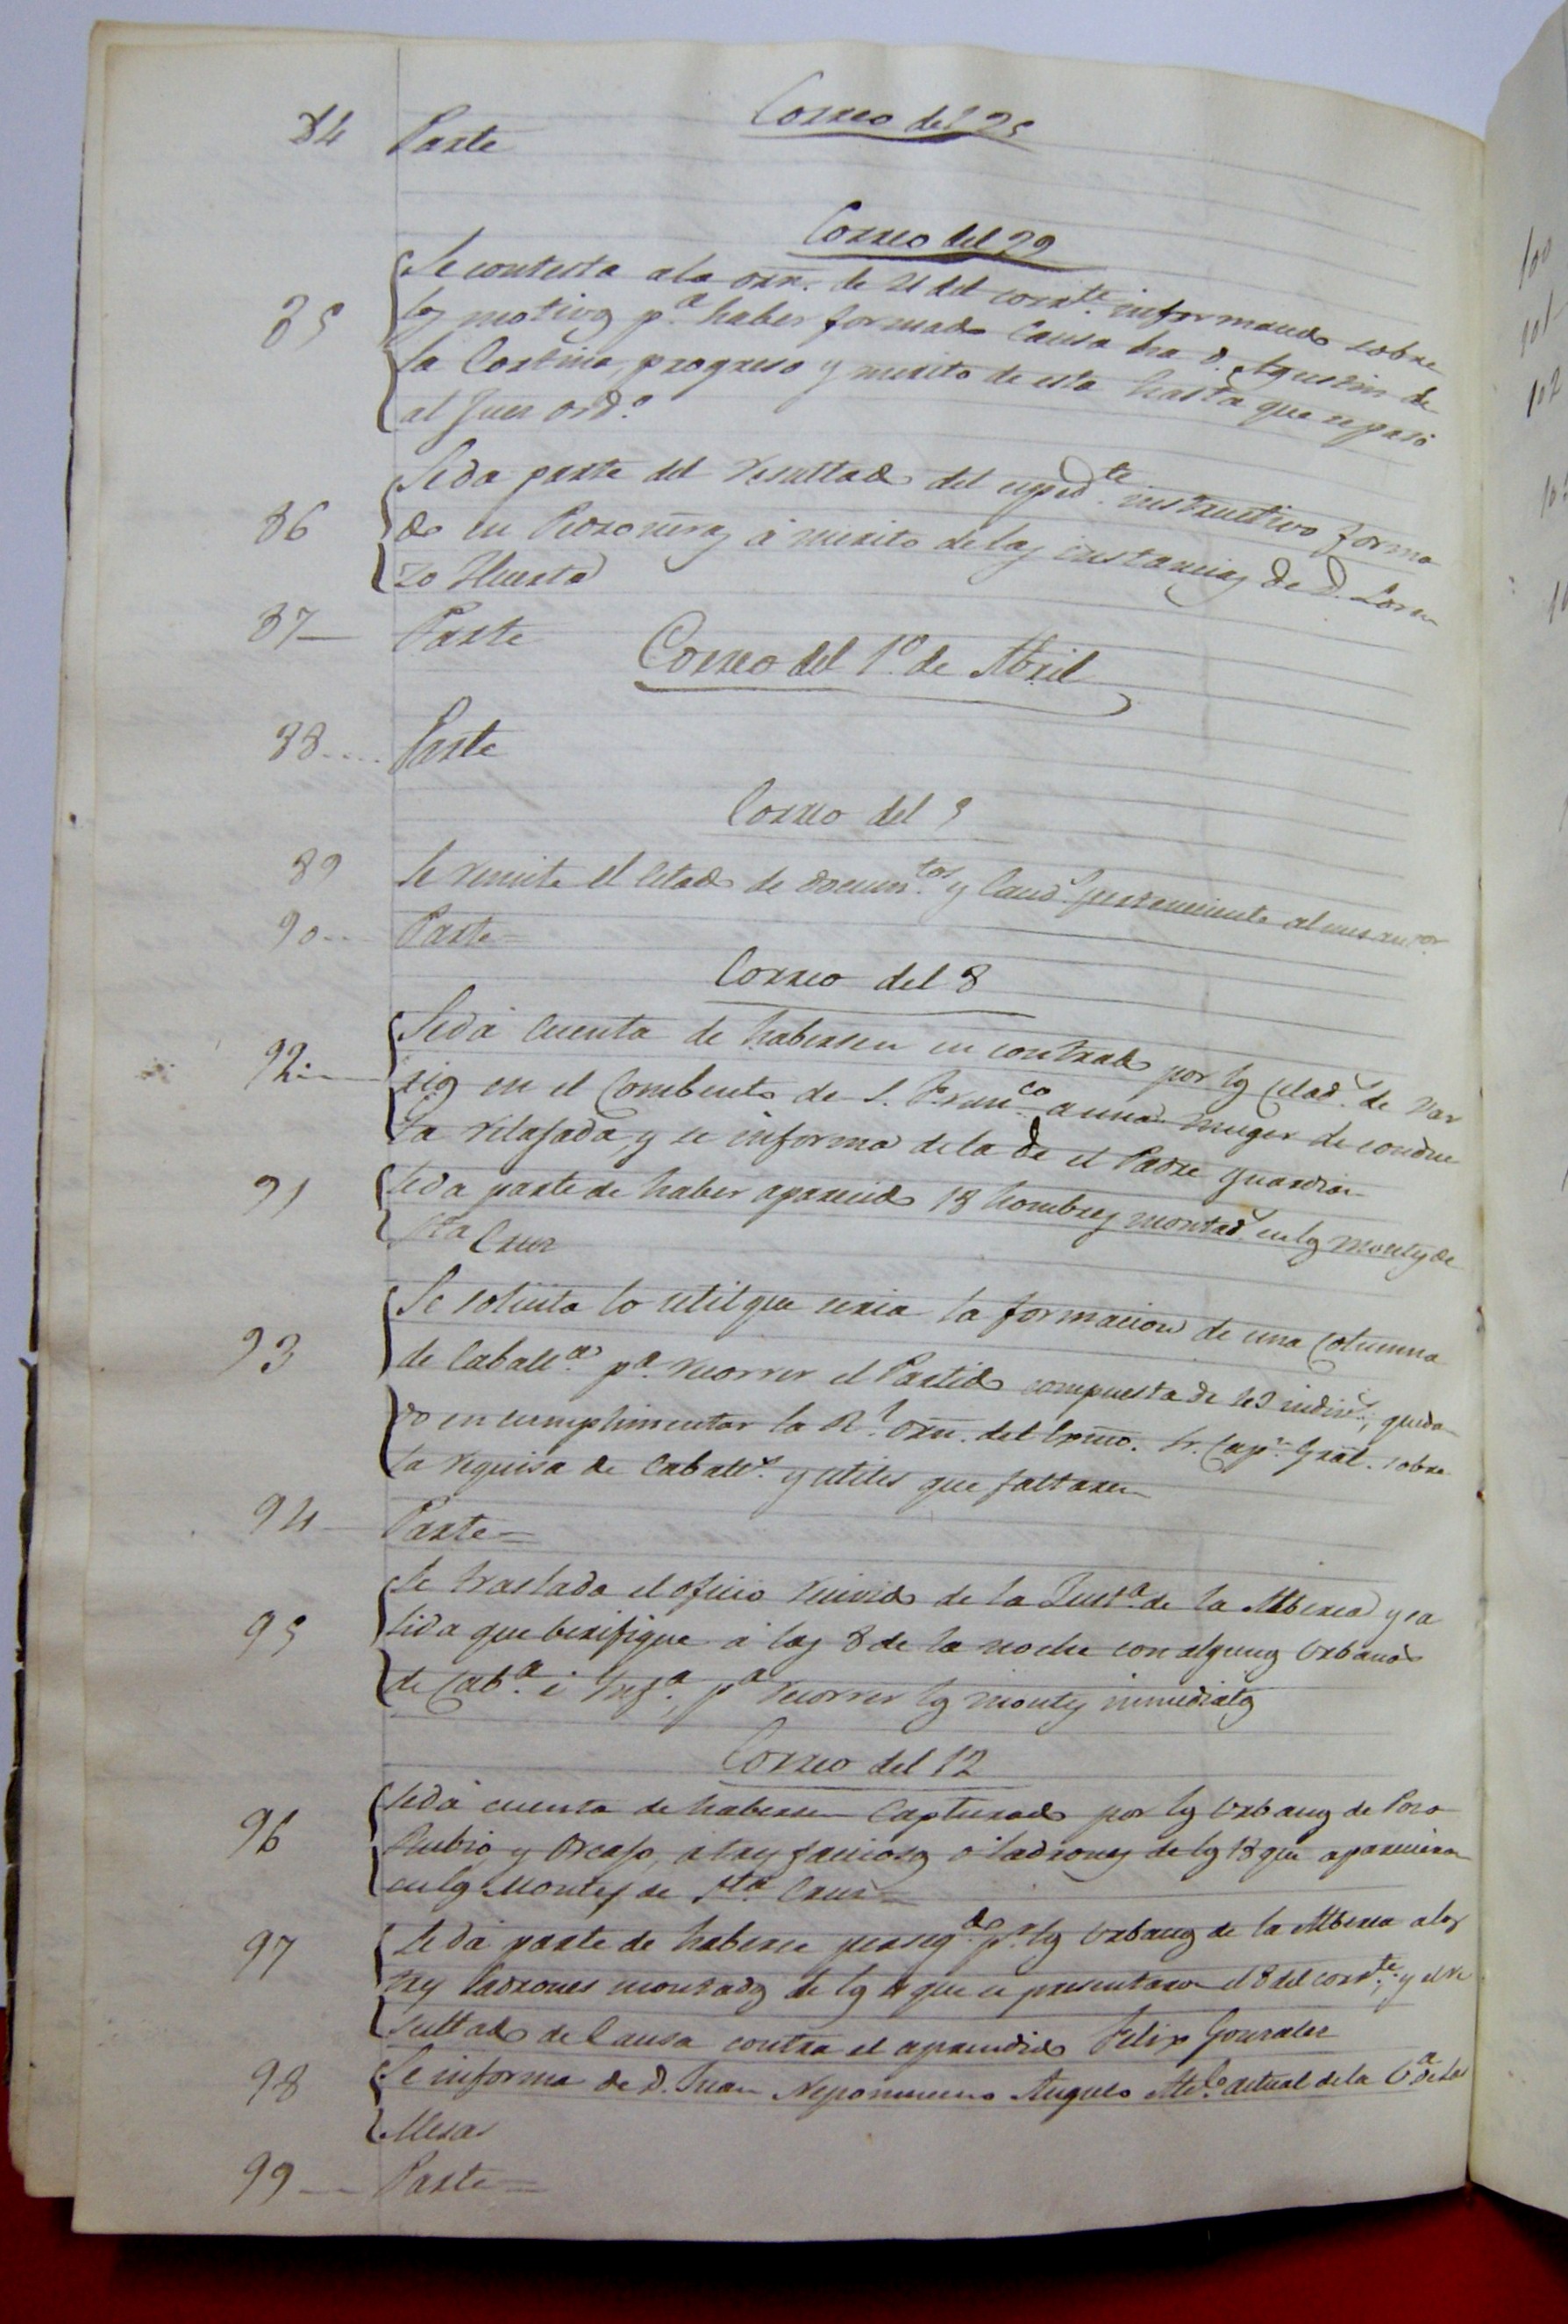 Correo del 25
84 Parte
Correo del 29
Se contesta a la orn. de 21 del corrte. informando sobre
85 los motivos pa. haber formado Causa tra D. Agustin de
la Cortina, progreso y merito de esta hasta que se pasó
al Juez ordo.
Se da parte del resultado del espedte. instructivo forma
86 do en Pedroñeras á merito de las instancias de D. Loren
zo Huerta
87 Parte
Correo del 1º. de Abril
88 Parte
Correo del 5
89 Se remite el Estado de documtos. y Caud.s perteneciente al mes antor.
90 Parte=
Correo del 8
Se dá cuenta de habersen en contrado por los Celads. de Bar
92 rios en el Combento de S. Franco. a una Muger de conduc
ta relajada, y se informa de la de el Padre Guardian
91 Se da parte de haber aparecido 18 hombres montads. en los Montes de
Sta Cruz
Se solicita lo util que seria la formacion de una Columna
93 de Caballa. pa. recorrer el Partido compuesta de 40 indivs., quedan
do en cumplimentar la Rl. orn. del Exmo. Sr. Capn. Gral. sobre
la requisa de Caballs. y utiles que faltaren
94 Parte=
Se traslada el oficio recivido de la Justa. de la Alberca y sa
95 lida que berifique á las 8 de la noche con algunos Urbanos
de Caba. é Infa., pa recorrer los montes inmediatos
Correo del 12
Se dá cuenta de habersen Capturado por los Urbanos de Pozo
96 Rubio y Orcajo, a tres facciosos o ladrones de los 18 que aparecieron
en los Montes de Sta. Cruz=
97 Se dá parte de haberse persegdo. pr. los Urbanos de la Alberca a los
tres ladrones montados de los 4 que se presentaron el 8 del corrte.; y el re
sultado de Causa contra el aprendido Felix Gonzalez
98 Se informa de D. Juan Nepomuceno Angulo Alce. actual de la Va. de las
Mesas
99 Parte=
100
101
102